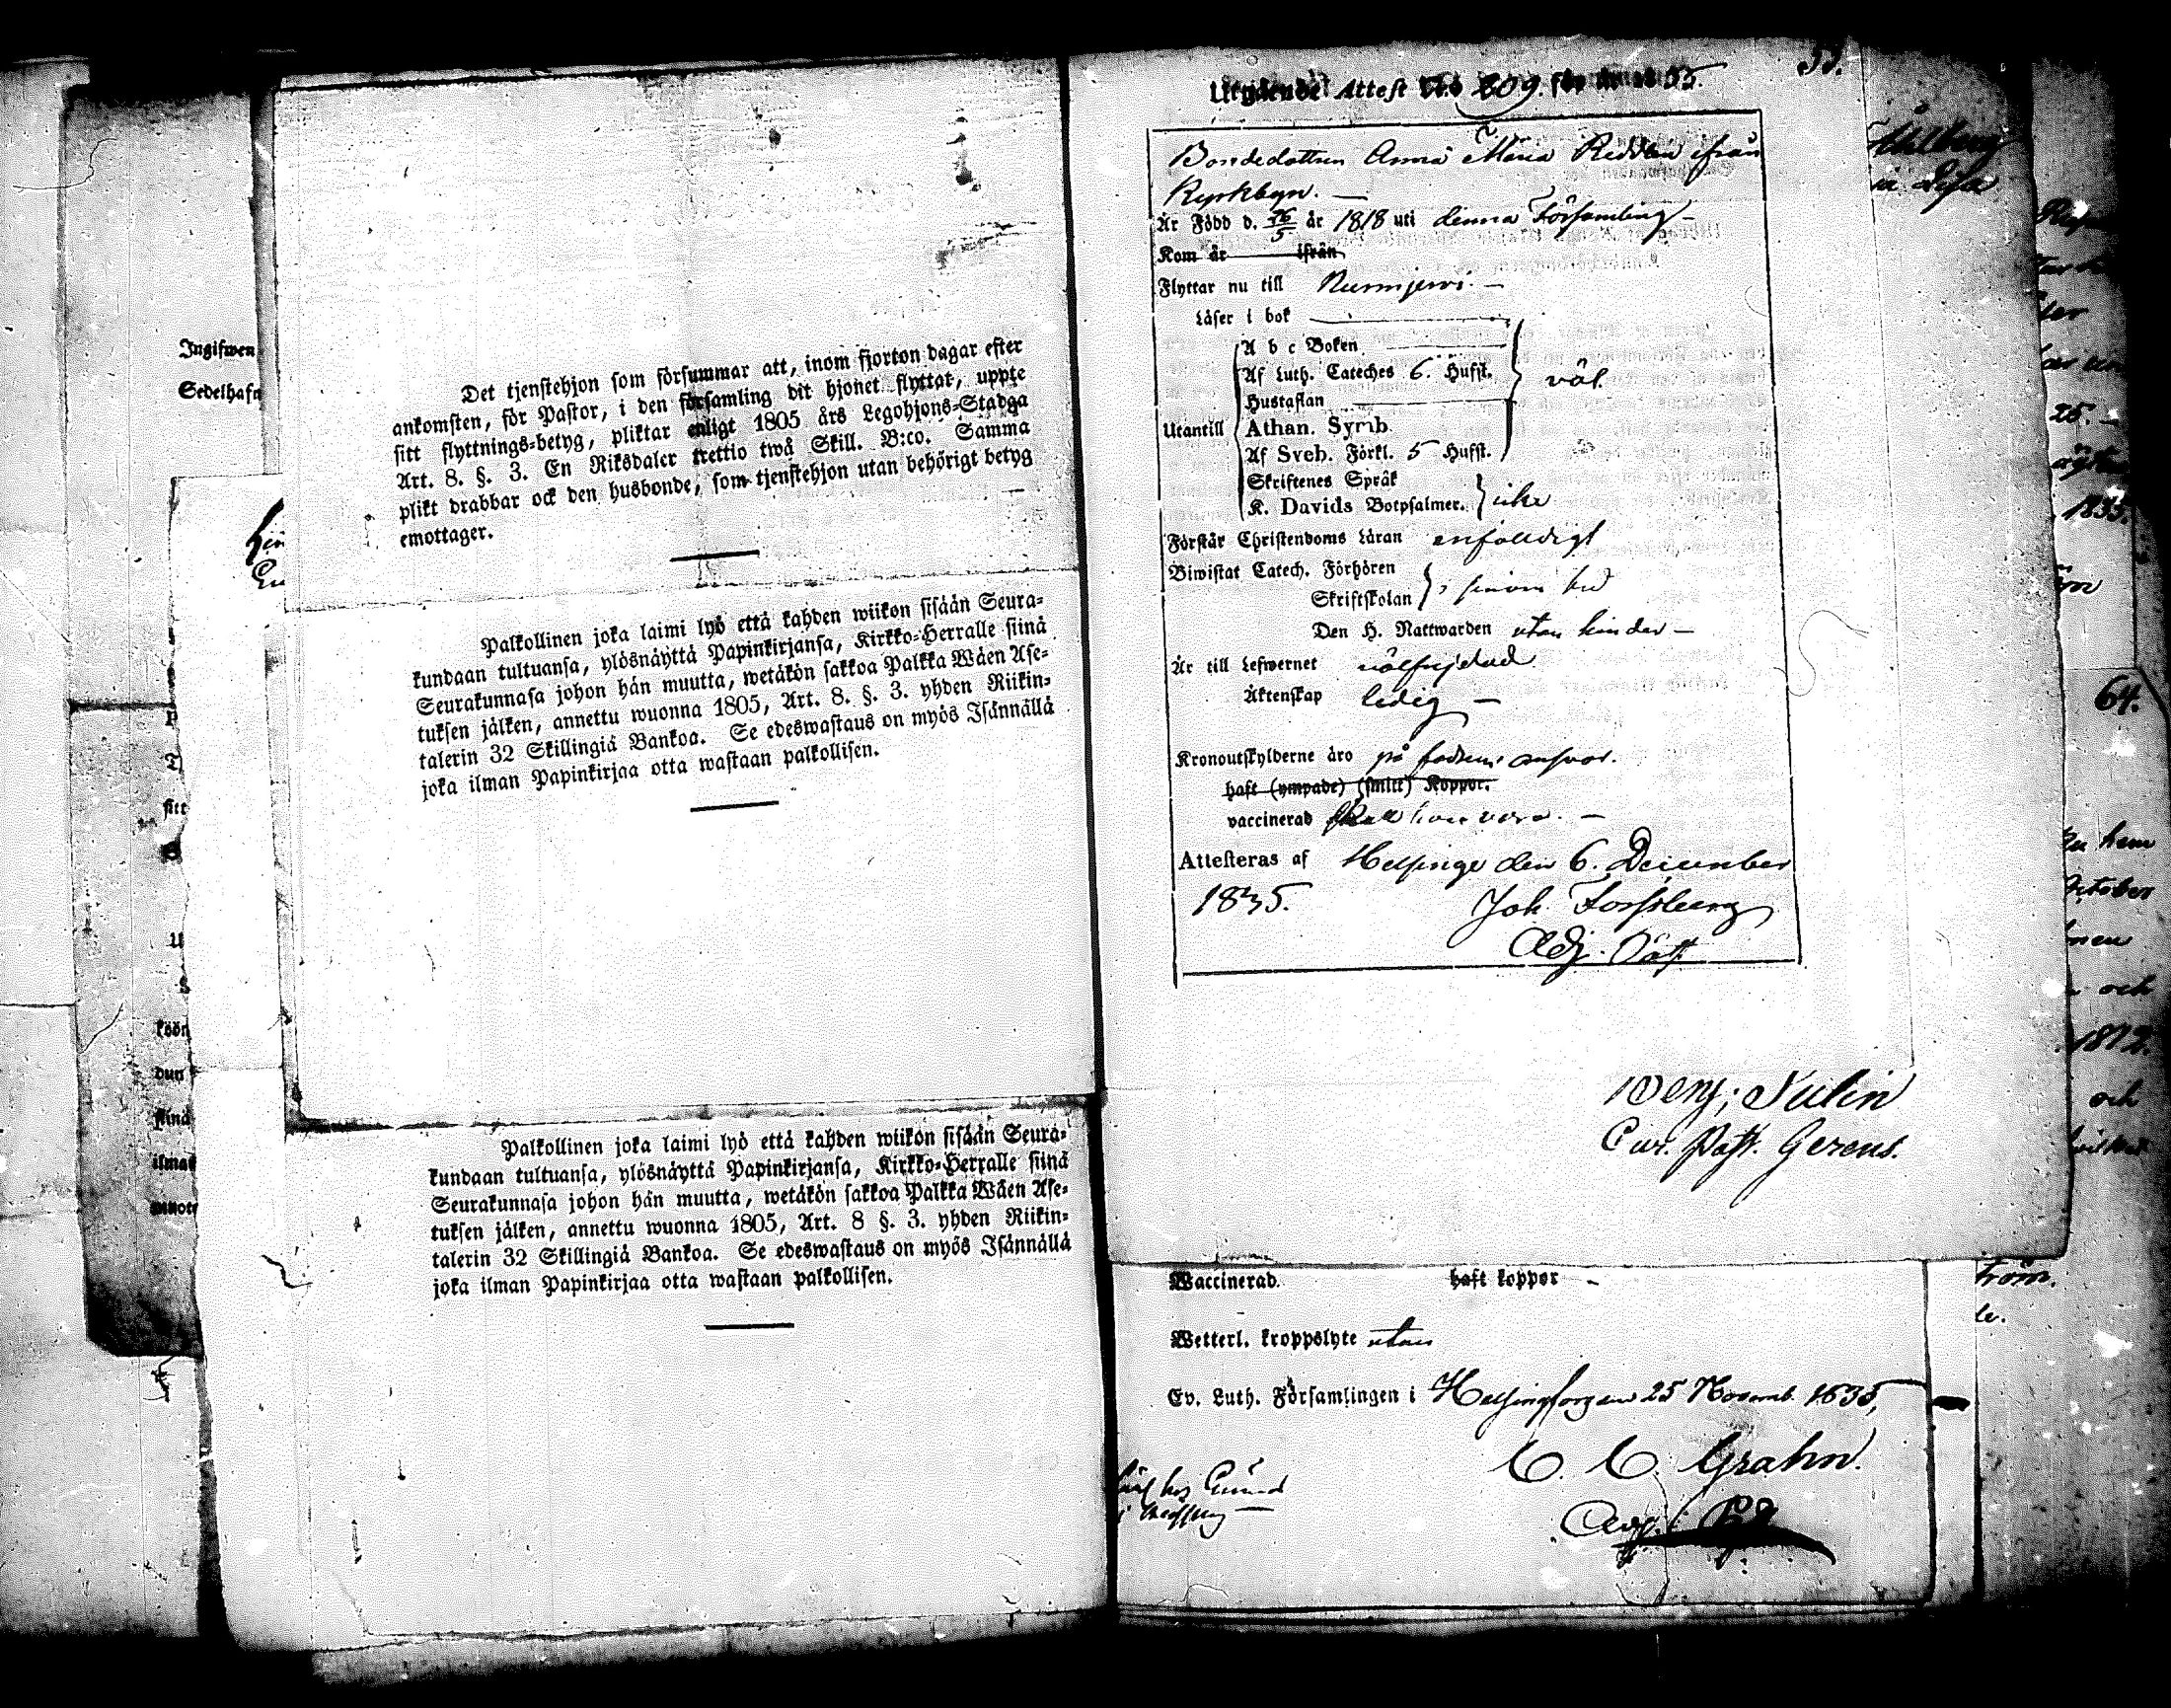 Ingifwen
Sedelhafw
Det tjenstehjon som försummar att, inom fjorton dagar efter
ankomsten, för Pastor, i den församling dit hjonet flyttat, uppte
sitt flyttnings-betyg, pliktar enligt 1805 års Legohjons-Stadga
Art. 8. §. 3. En Riksdaler trettio twå Skill. B:co. Samma
plikt drabbar ock den husbonde, som tjenstehjon utan behörigt betyg
emottager.
Palkollinen joka laimi lyö että kahden wiikon sisään Seura-
kundaan tultuansa, ylösnäyttä Papinkirjansa, Kirkko-Herralle siinä
Seurakunnasa johon hän muutta, wetäkön sakkoa Palkka Wäen Ase-
tuksen jälken, annettu wuonna 1805, Art. 8. §. 3. yhden Riikin-
talerin 32 Skillingiä Bankoa. Se edeswastaus on myös Isännällä
joka ilman Papinkirjaa otta wastaan palkollisen.
Palkollinen joka laimi lyö että kahden wiikon sisään Seura-
kundaan tultuansa, ylösnäyttä Papinkirjansa, Kirkko-Herralle siinä
Seurakunnasa johon hän muutta, wetäkön sakkoa Palkka Wäen Ase-
tuksen jälken, annettu wuonna 1805, Art. 8 §. 3. yhden Riikin-
talerin 32 Skillingiä Bankoa. Se edeswastaus on myös Isännällä
joka ilman Papinkirjaa otta wastaan palkollisen.
Utgående Attest N:o 209. för år 18
Bondedottren Anna Maria Reddan ifrån
Kyrkbyn. —
Är Född d. 26/5 år 1818 uti denna Församling —
Kom år — ifrån
Flyttar nu till Nurmijerwi. —
Läser i bok
A b c Boken
Af Luth. Cateches 6. Hufst. väl.
Hustaflan
Utantill Athan. Symb.
Af Sveb. Förkl. 5 Hufst.
Skriftenes Språk
K. Davids Botpsalmer. icke
Förstår Christendoms Läran enfalldigt
Biwistat Catech. Förhören
Skriftskolan
Den H. Nattwarden utan hinder —
Är till Lefwernet välfrejdad
Äktenskap ledig —
Kronoutskylderne äro på fadrens answar.
haft (ympade) (smitt) Koppor.
vaccinerad skall hon vara. —
Attesteras af Helsinge den 6. December
1835. Joh. Forssberg
Adj. Past.
Benj; Sulin
Cur. Past. Gerens.
Waccinerad. haft koppor —
Wetterl. kroppslyte utan
Ev. Luth. Församlingen i Helsingfors den 25 Novemb. 1835,
C. C. Grahn.
64.
25. —
1835.
October
och
1812.
och